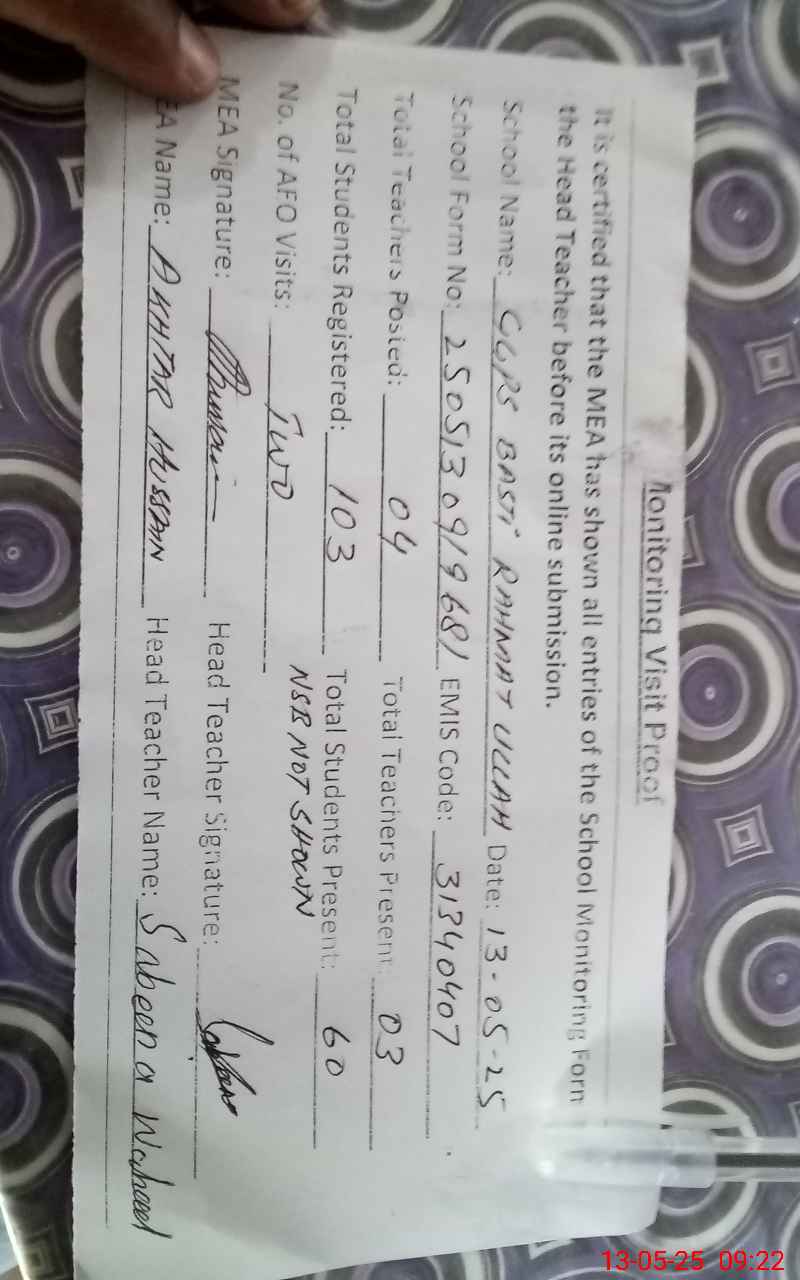 Monitoring Visit Proof
It is certified that the MEA has shown all entries of the School Monitoring Form
the Head Teacher before its online submission.
School Name: GGPS BASTI RAHMAT ULLAH Date: 13-05-25
School Form No: 2505130919681 EMIS Code: 31340407
Total Teachers Posted: 04 Total Teachers Present: 03
Total Students Registered: 103 Total Students Present: 60
No. of AFO Visits: Two NSB NOT SHOWN
MEA Signature: Head Teacher Signature:
EA Name: AKHTAR HUSSAIN Head Teacher Name: Sabeena Waheed
13-05-25 09:22